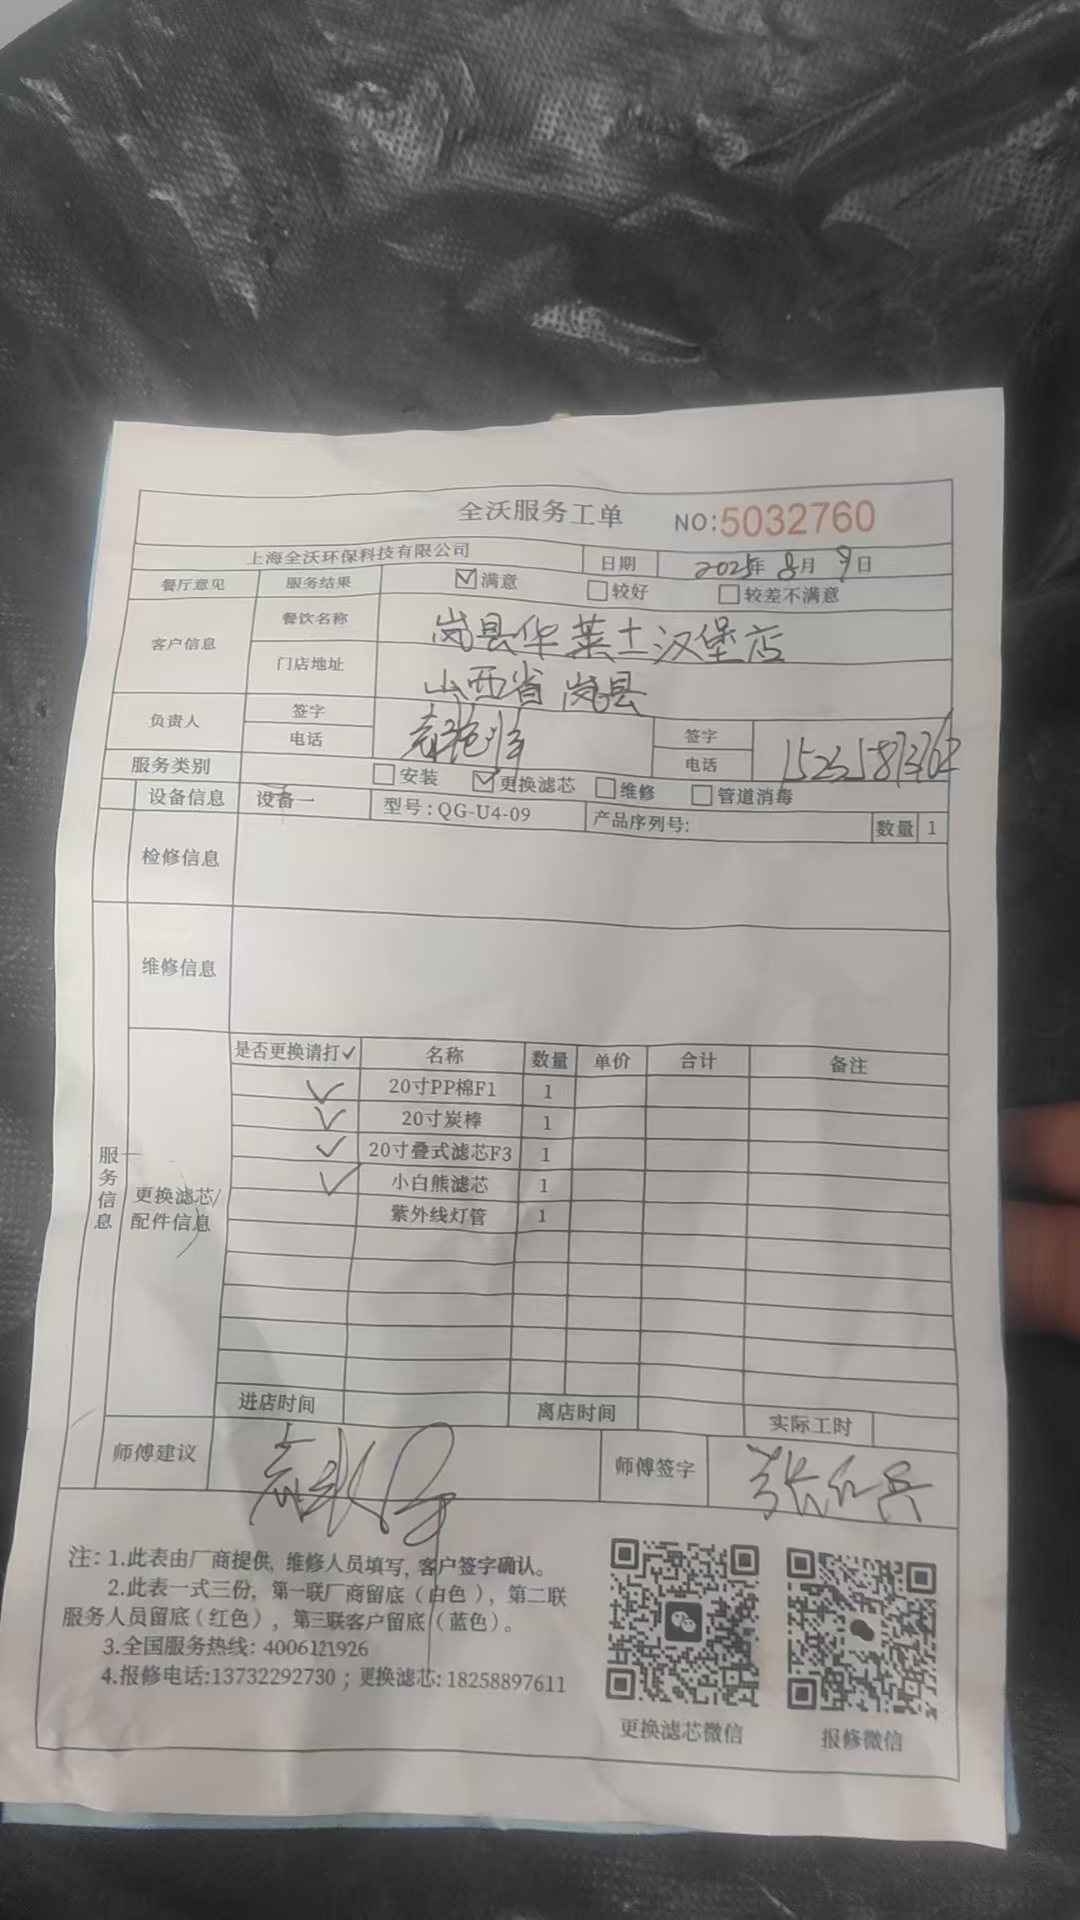 全沃服务工单 NO:5032760
上海全沃环保科技有限公司 日期 2025年8月9日
餐厅意见 服务结果 ☑满意 □较好 □较差不满意
客户信息 餐饮名称 岚县华莱士汉堡店
门店地址 山西省岚县
负责人 签字 签字
电话 电话
服务类别 □安装 ☑更换滤芯 □维修 □管道消毒
设备信息 设备一 型号:QG-U4-09 产品序列号: 数量 1
检修信息
维修信息
服务信息
更换滤芯/配件信息
是否更换请打✓ 名称 数量 单价 合计 备注
✓ 20寸PP棉F1 1
✓ 20寸炭棒 1
✓ 20寸叠式滤芯F3 1
✓ 小白熊滤芯 1
紫外线灯管 1
进店时间 离店时间 实际工时
师傅建议 师傅签字 张红兵
注: 1.此表由厂商提供, 维修人员填写, 客户签字确认。
2.此表一式三份, 第一联厂商留底(白色), 第二联
服务人员留底(红色), 第三联客户留底(蓝色)。
3.全国服务热线: 4006121926
4.报修电话:13732292730; 更换滤芯: 18258897611
更换滤芯微信 报修微信